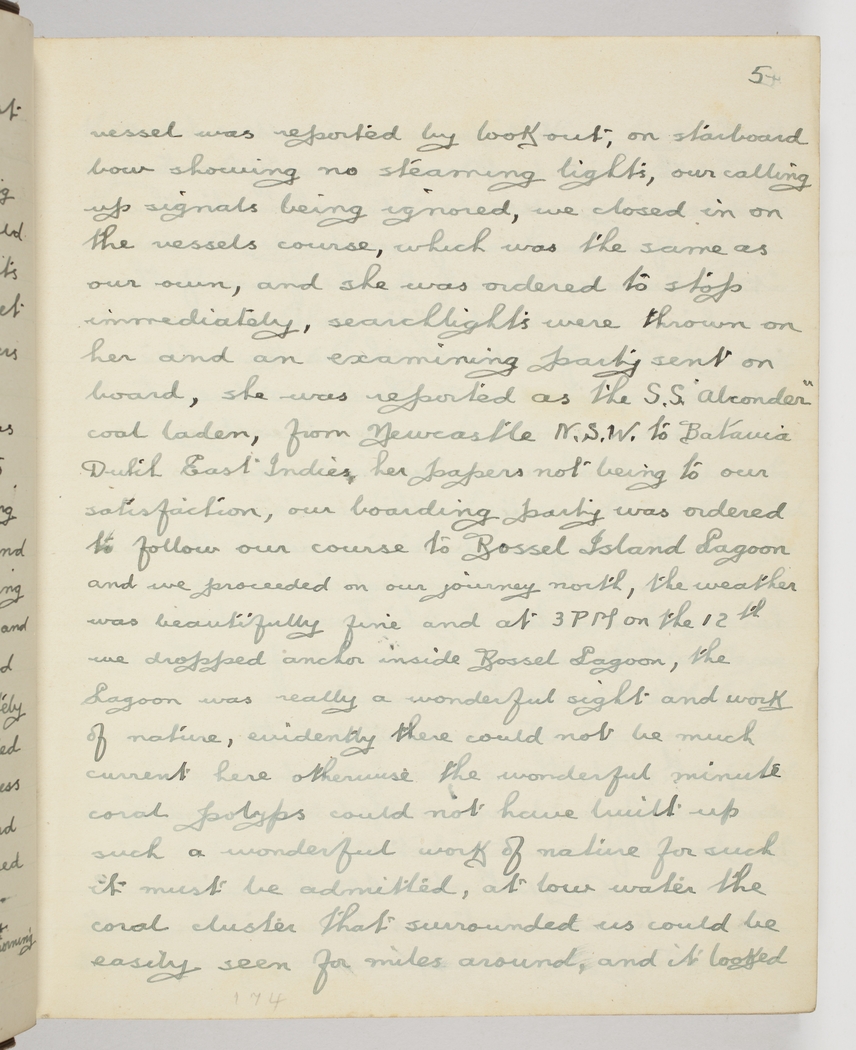 5
vessel was reported by look out, on starboard
bow showing no steaming lights, our calling
up signals being ignored, we closed in on
the vessels course, which was the same as
our own, and she was ordered to stop
immediately, searchlights were thrown on
her and an examining party sent on
board, she was reported as the S.S. "Alconder"
coal laden, from Newcastle N.S.W. to Batavia
Dutch East Indies, her papers not being to our
satisfaction, our boarding party was ordered
to follow our course to Rossel Island Lagoon
and we proceeded on our journey north, the weather
was beautifully fine and at 3 PM on the 12th
we dropped anchor inside Rossel Lagoon, the
Lagoon was really a wonderful sight and work
of nature, evidently there could not be much
current here otherwise the wonderful minute
coral polyps could not have built up
such a wonderful work of nature for such
it must be admitted, at low water the
coral cluster that surrounded us could be
easily seen for miles around, and it looked
174